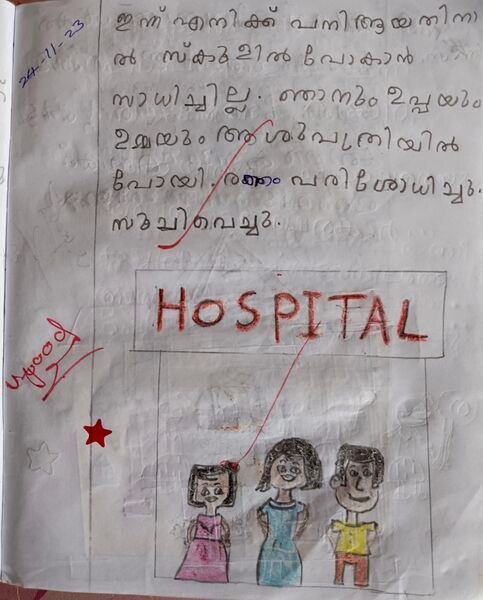 24-11-23
ഇന്ന് എനിക്ക് പനിആയതിനാ
ൽ സ്കൂളിൽ പോകാൻ
സാധിച്ചില്ല. ഞാനും ഉപ്പയും
ഉമ്മയും ആശുപത്രിയിൽ
പോയി. രക്തം പരിശോധിച്ചു.
സൂചിവെച്ചു.
HOSPITAL
Good